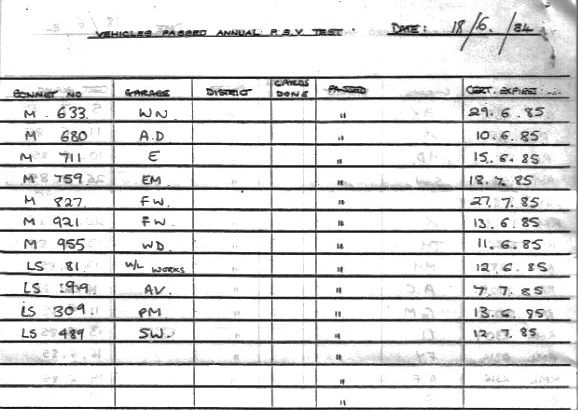 VEHICLES PASSED ANNUAL P.S.V TEST. DATE: 18/6./84
BONNET NO GARAGE DISTRICT CARDS DONE PASSED CERT. EXPIRES
M 633 WN " 29.6.85
M 680 A.D " 10.6.85
M 711 E " 15.6.85
M 759 EM " 18.7.85
M 827 FW " 27.7.85
M 921 FW " 13.6.85
M 955 WD " 11.6.85
LS 81 W/L WORKS " 12.6.85
LS AV. " 7.7.85
LS 309 PM " 13.6.85
LS 489 SW " 12.7.85
"
"
"